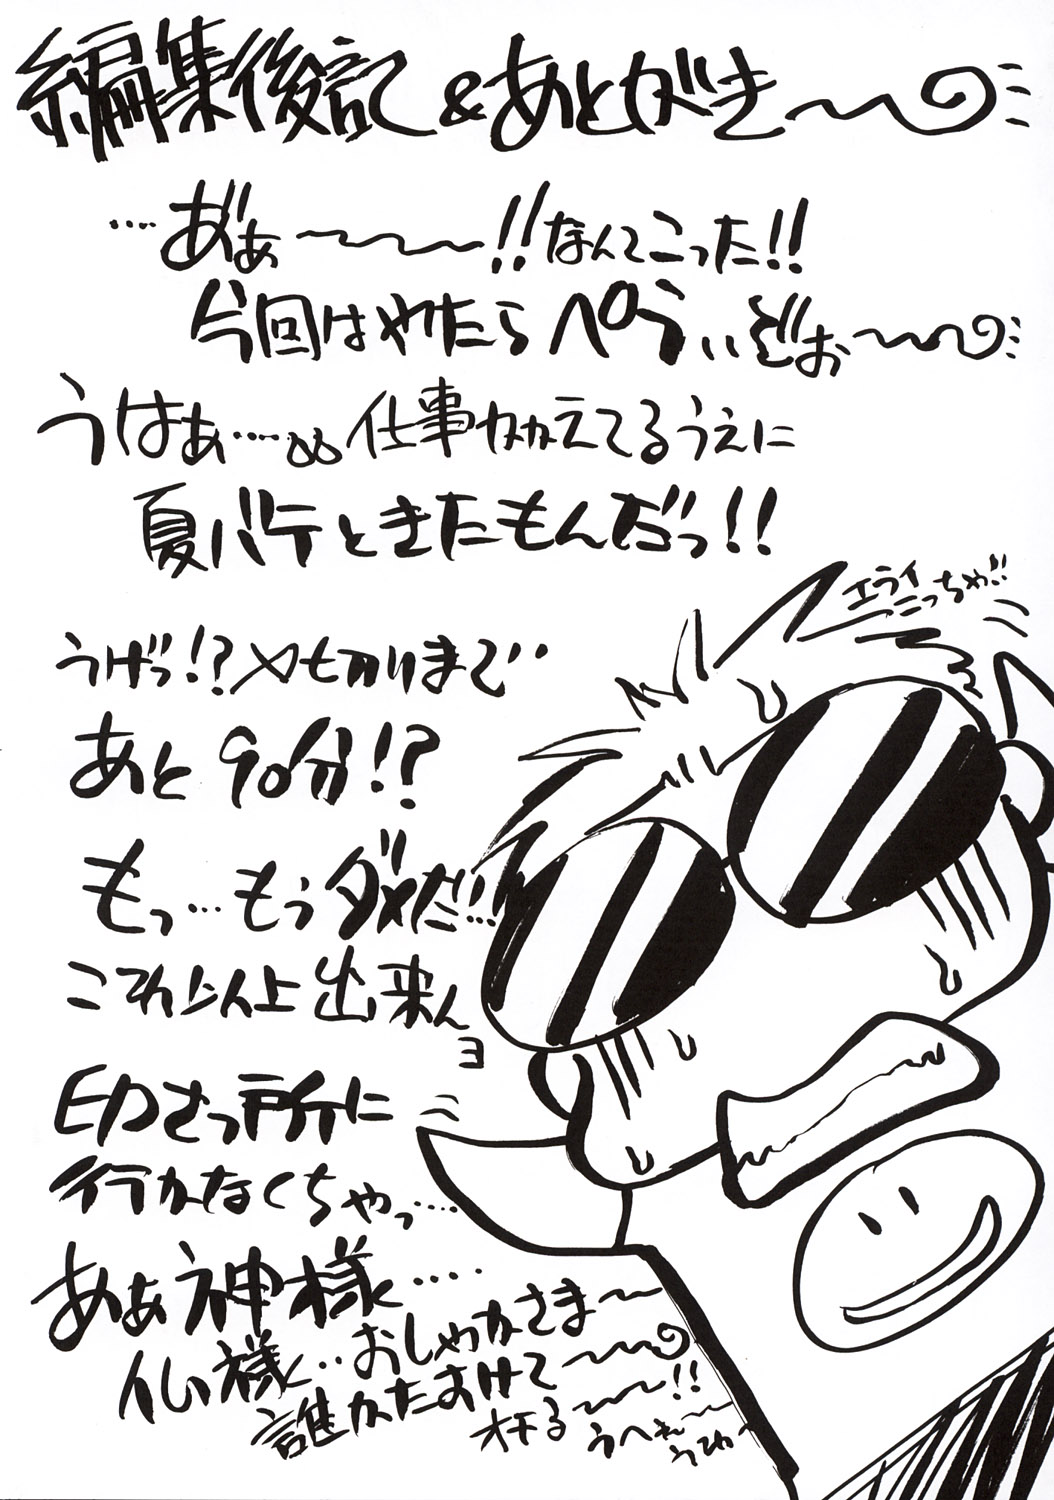 編集後記&あとがき〜
‥‥あ゛ぁ〜〜〜!!なんてこった!!
今回はやたらペラいぞぉ〜〜
うはぁ‥‥。。仕事かかえてるうえに
夏バテときたもんだっ!!
エライ
こっちゃ!!
うげっ!?〆切りまで‥
あと90分!?
もっ…もうダメだ…
これ以上出来ん
ヨ
印さつ所に
行かなくちゃっ‥‥
あぁ神様‥‥
仏様‥おしゃかさま〜
誰かたすけて〜〜
オチる〜〜!!
うへぇ〜
うひゃ〜